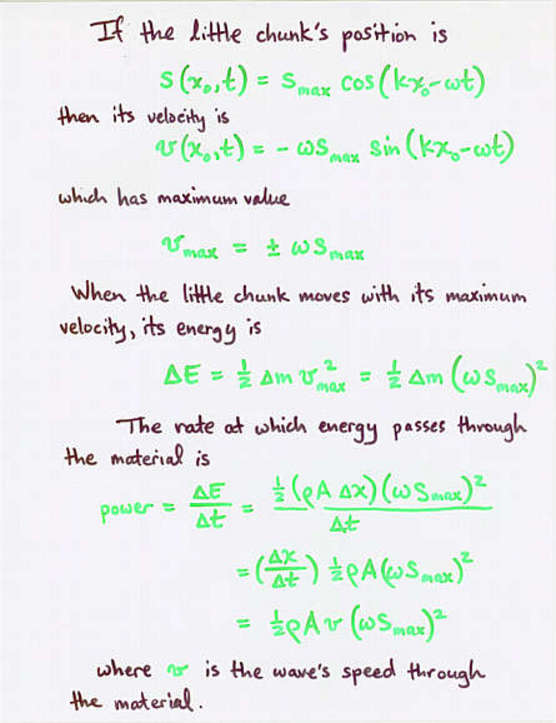 If the little chunk's position is
s(x₀,t) = s_max cos(kx₀-ωt)
then its velocity is
v(x₀,t) = - ωs_max sin(kx₀-ωt)
which has maximum value
v_max = ± ωs_max
When the little chunk moves with its maximum
velocity, its energy is
ΔE = ½ Δm v²_max = ½ Δm (ωs_max)²
The rate at which energy passes through
the material is
power = ΔE/Δt = ½(ρA Δx)(ωs_max)²/Δt
= (Δx/Δt) ½ρA(ωs_max)²
= ½ρAv (ωs_max)²
where v is the wave's speed through
the material.